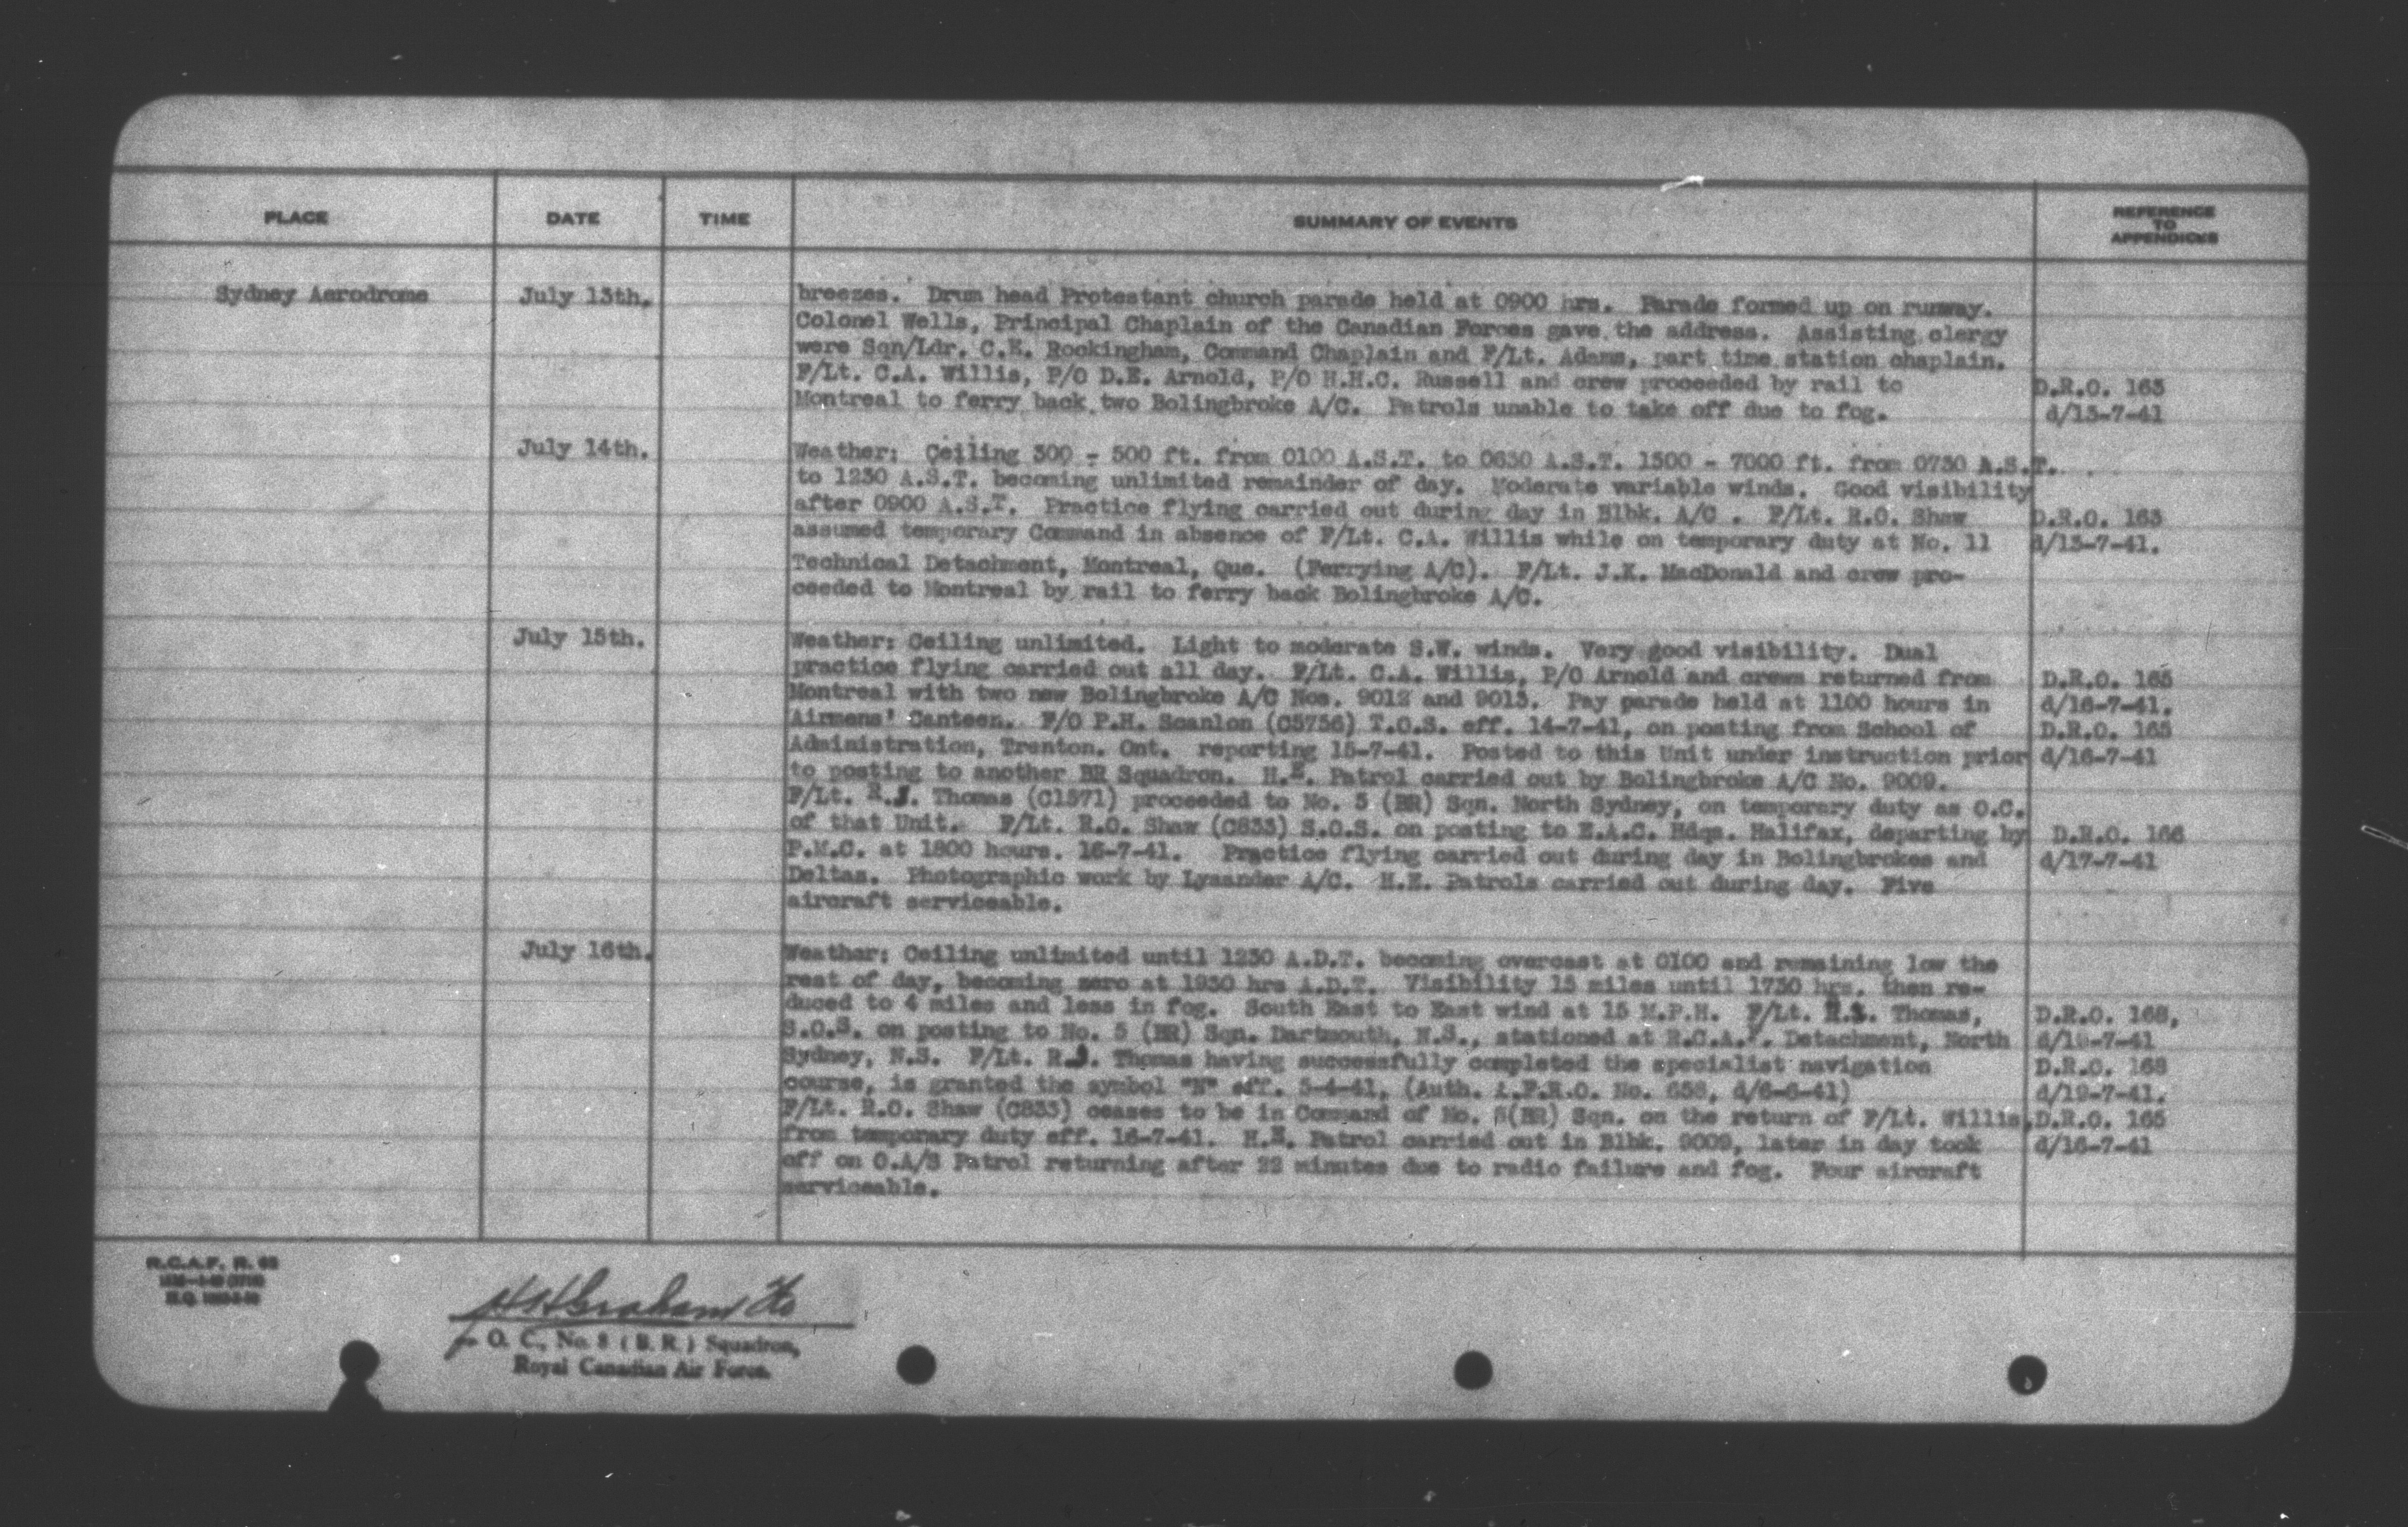 PLACE DATE TIME SUMMARY OF EVENTS REFERENCE TO APPENDICES
Sydney Aerodrome July 13th. breezes. Drum head Protestant church parade held at 0900 hrs. Parade formed up on runway.
Colonel Wells, Principal Chaplain of the Canadian Forces gave the address. Assisting clergy
were Sqn/Ldr. C.E. Rockingham, Command Chaplain and F/Lt. Adams, part time station chaplain.
F/Lt. C.A. Willis, P/O D.E. Arnold, P/O H.H.C. Russell and crew proceeded by rail to D.R.O. 163
Montreal to ferry back two Bolingbroke A/C. Patrols unable to take off due to fog. d/13-7-41
July 14th. Weather: Ceiling 300 - 500 ft. from 0100 A.S.T. to 0630 A.S.T. 1500 - 7000 ft. from 0730 A.S.T.
to 1230 A.S.T. becoming unlimited remainder of day. Moderate variable winds. Good visibility
after 0900 A.S.T. Practice flying carried out during day in Blbk. A/C . F/Lt. R.O. Shaw D.R.O. 163
assumed temporary Command in absence of F/Lt. C.A. Willis while on temporary duty at No. 11 d/13-7-41.
Technical Detachment, Montreal, Que. (Ferrying A/C). F/Lt. J.K. MacDonald and crew pro-
ceeded to Montreal by rail to ferry back Bolingbroke A/C.
July 15th. Weather: Ceiling unlimited. Light to moderate S.W. winds. Very good visibility. Dual
practice flying carried out all day. F/Lt. C.A. Willis, P/O Arnold and crews returned from D.R.O. 165
Montreal with two new Bolingbroke A/C Nos. 9012 and 9013. Pay parade held at 1100 hours in d/16-7-41.
Airmens' Canteen. F/O P.H. Scanlon (C5756) T.O.S. eff. 14-7-41, on posting from School of D.R.O. 165
Administration, Trenton. Ont. reporting 15-7-41. Posted to this Unit under instruction prior d/16-7-41
to posting to another BR Squadron. H.E. Patrol carried out by Bolingbroke A/C No. 9009.
F/Lt. R.J. Thomas (C1571) proceeded to No. 5 (BR) Sqn. North Sydney, on temporary duty as O.C.
of that Unit. F/Lt. R.O. Shaw (C833) S.O.S. on posting to E.A.C. Hdqs. Halifax, departing by D.R.O. 166
P.M.C. at 1800 hours. 16-7-41. Practice flying carried out during day in Bolingbrokes and d/17-7-41
Deltas. Photographic work by Lysander A/C. H.E. Patrols carried out during day. Five
aircraft serviceable.
July 16th. Weather: Ceiling unlimited until 1230 A.D.T. becoming overcast at 0100 and remaining low the
rest of day, becoming zero at 1930 hrs A.D.T. Visibility 15 miles until 1730 hrs. then re-
duced to 4 miles and less in fog. South East to East wind at 15 M.P.H. F/Lt. R.J. Thomas, D.R.O. 168,
S.O.S. on posting to No. 5 (BR) Sqn. Dartmouth, N.S., stationed at R.C.A.F. Detachment, North d/19-7-41
Sydney, N.S. F/Lt. R.J. Thomas having successfully completed the specialist navigation D.R.O. 168
course, is granted the symbol "N" eff. 5-4-41, (Auth. A.F.R.O. No. 658, d/6-6-41) d/19-7-41.
F/Lt. R.O. Shaw (C833) ceases to be in Command of No. 8(BR) Sqn. on the return of F/Lt. Willis, D.R.O. 165
from temporary duty eff. 16-7-41. H.E. Patrol carried out in Blbk. 9009, later in day took d/16-7-41
off on O.A/S Patrol returning after 22 minutes due to radio failure and fog. Four aircraft
serviceable.
R.C.A.F. R. 65
H H Graham F/O
for O. C., No. 8 ( B. R. ) Squadron,
Royal Canadian Air Force.